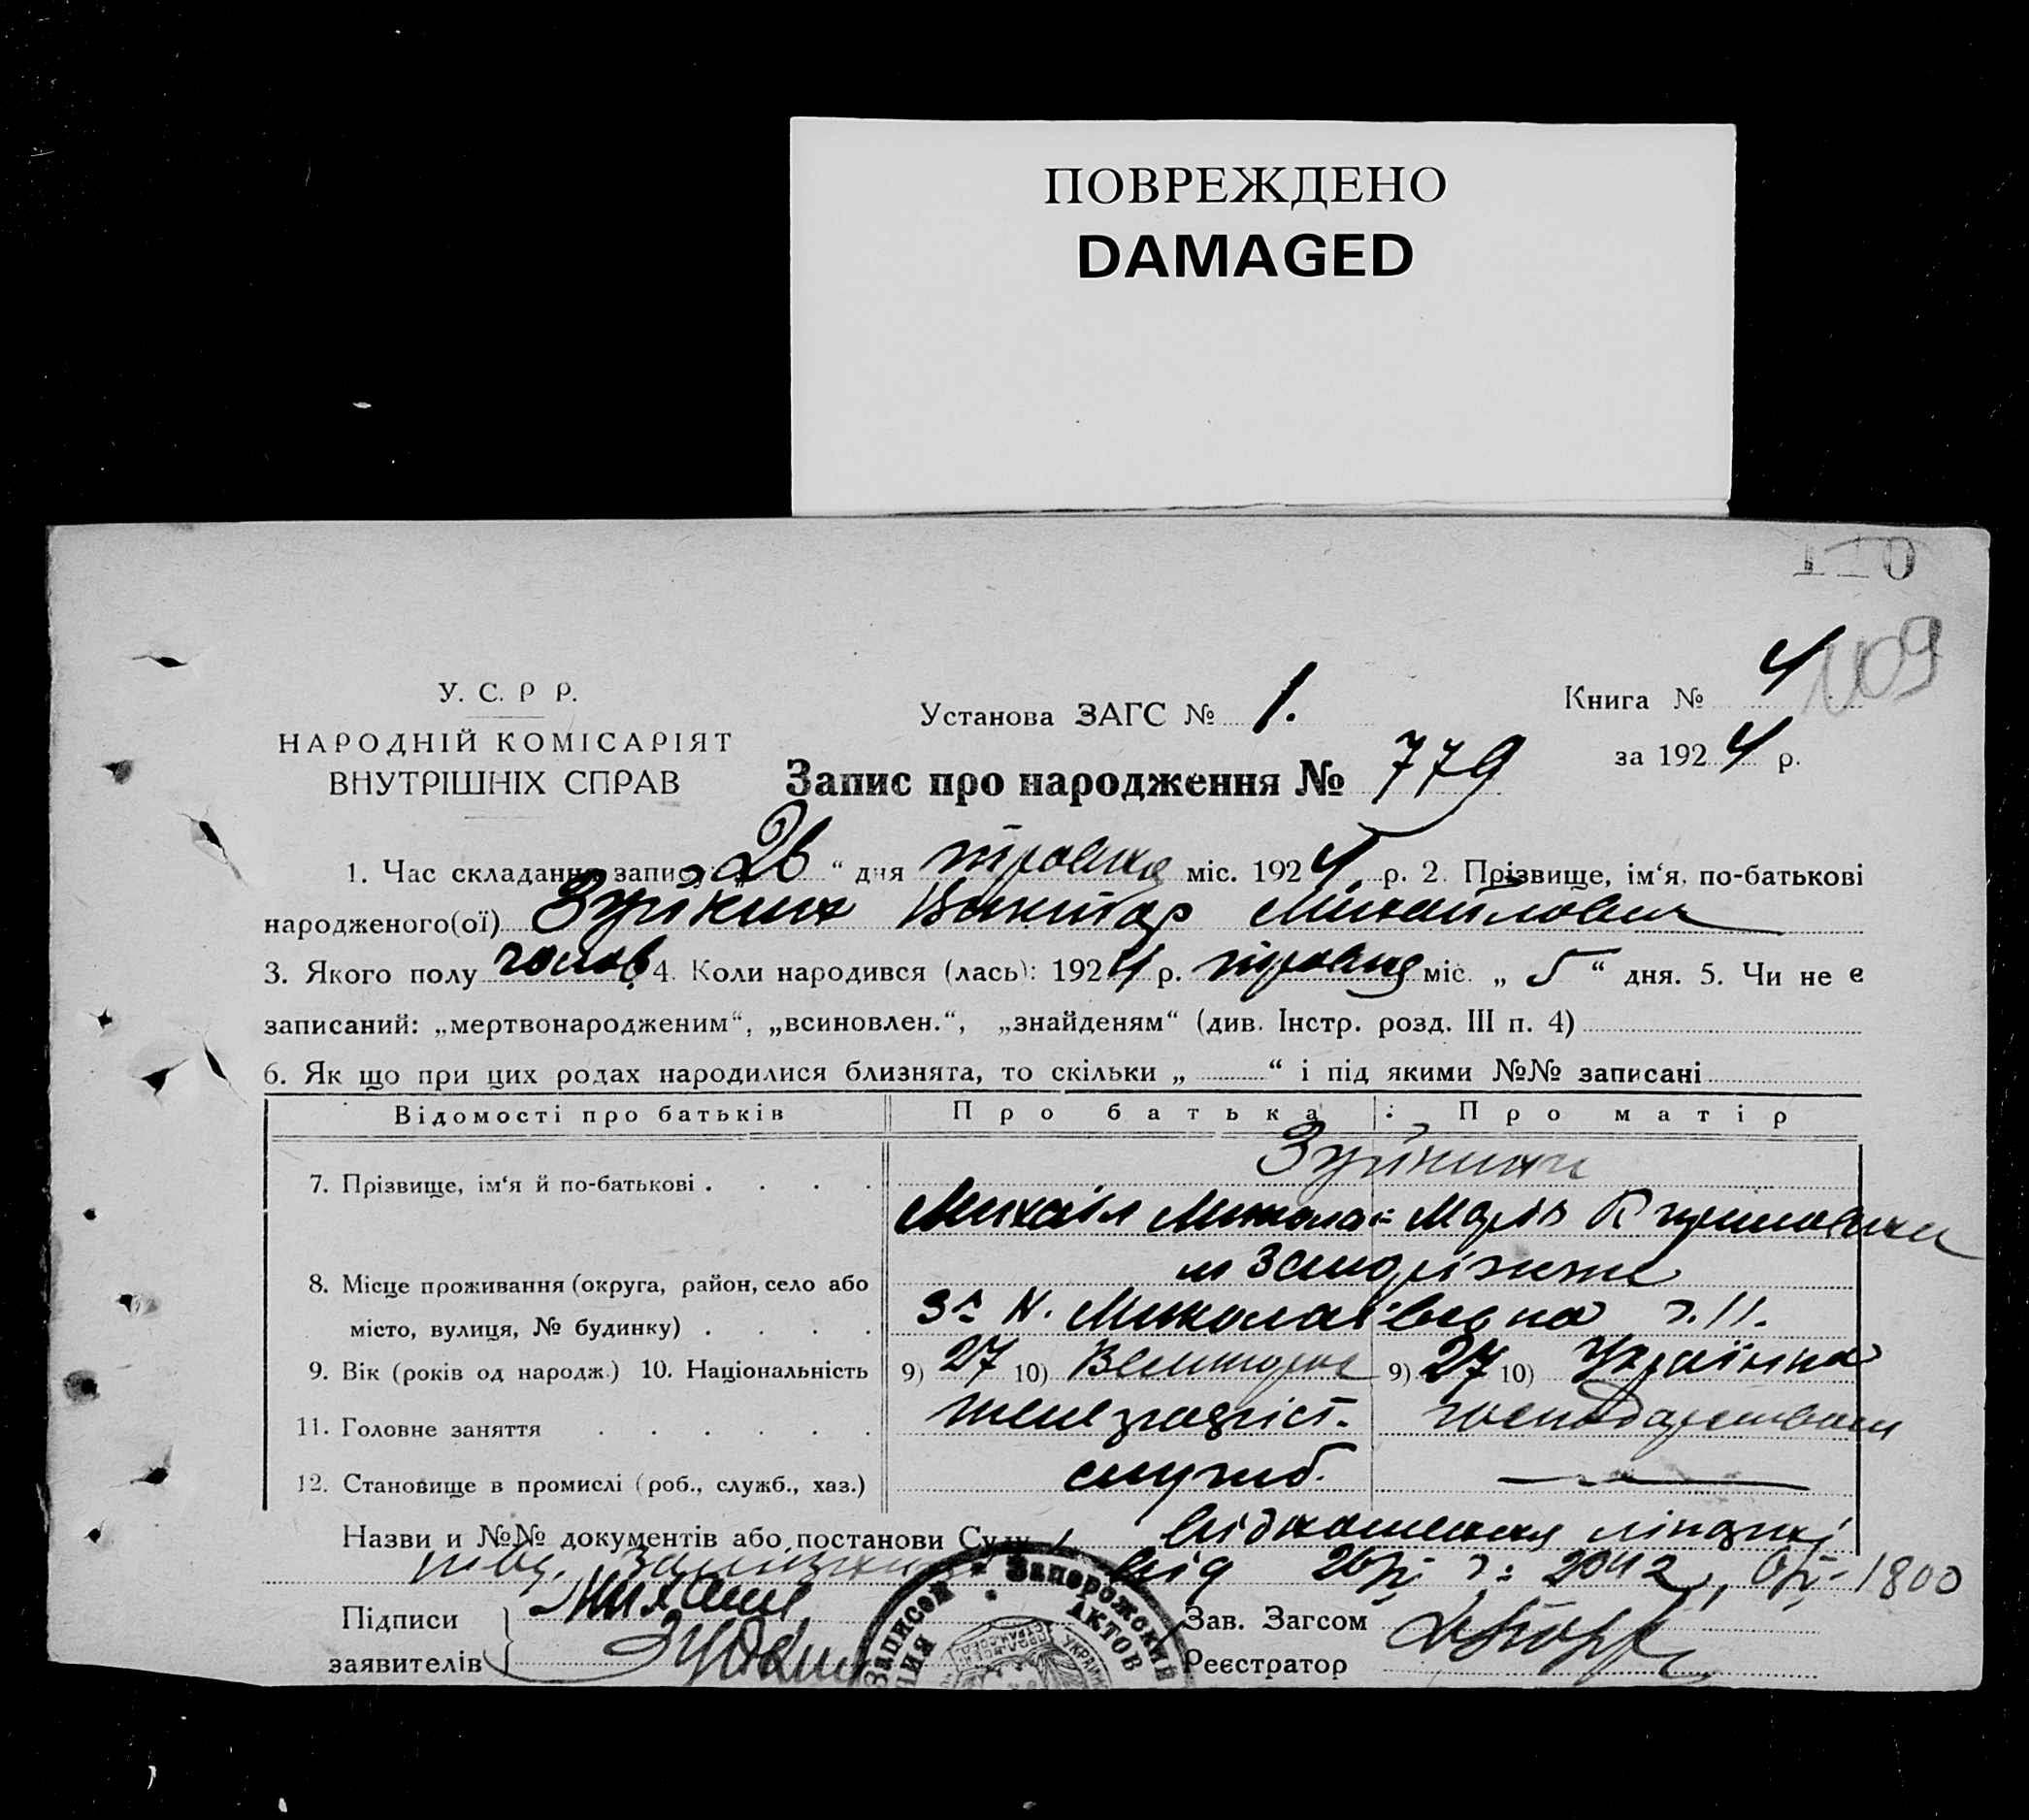 ПОВРЕЖДЕНО
DAMAGED
110
109
У. С. Р Р.
НАРОДНІЙ КОМІСАРІЯТ
ВНУТРІШНІХ СПРАВ
Установа ЗАГС № 1.
Книга № 4
за 1924 р.
Запис про народження № 779
1. Час складання запису „26“ дня травня міс. 1924 р. 2. Прізвище, ім‘я, по-батькові
народженого(ої) Зуйкин Виктор Михайлович
3. Якого полу чолов. 4. Коли народився (лась): 1924 р. травня міс. „5“ дня. 5. Чи не є
записаний: „мертвонародженим“, „всиновлен.“, „знайденям“ (див. Інстр. розд. III п. 4)
6. Як що при цих родах народилися близнята, то скільки „ “ і під якими №№ записані
Відомості про батьків Про батька Про матір
7. Прізвище, ім‘я й по-батькові
Михаіл Микола= Марія
8. Місце проживання (округа, район, село або м Запоріжжє
місто, вулиця, № будинку) Миколаївська 11.
9. Вік (років од народж.) 10. Національність 9) 27 10) Великорос 9) 27 10) Українка
11. Головне заняття
12. Становище в промислі (роб., служб., хаз.) служб. —
Назви и №№ документів або постанови Суду відношення
від 2042, 1800
Підписи
заявителів
Запорожский
Записей Актов
Зав. Загсом
Реєстратор